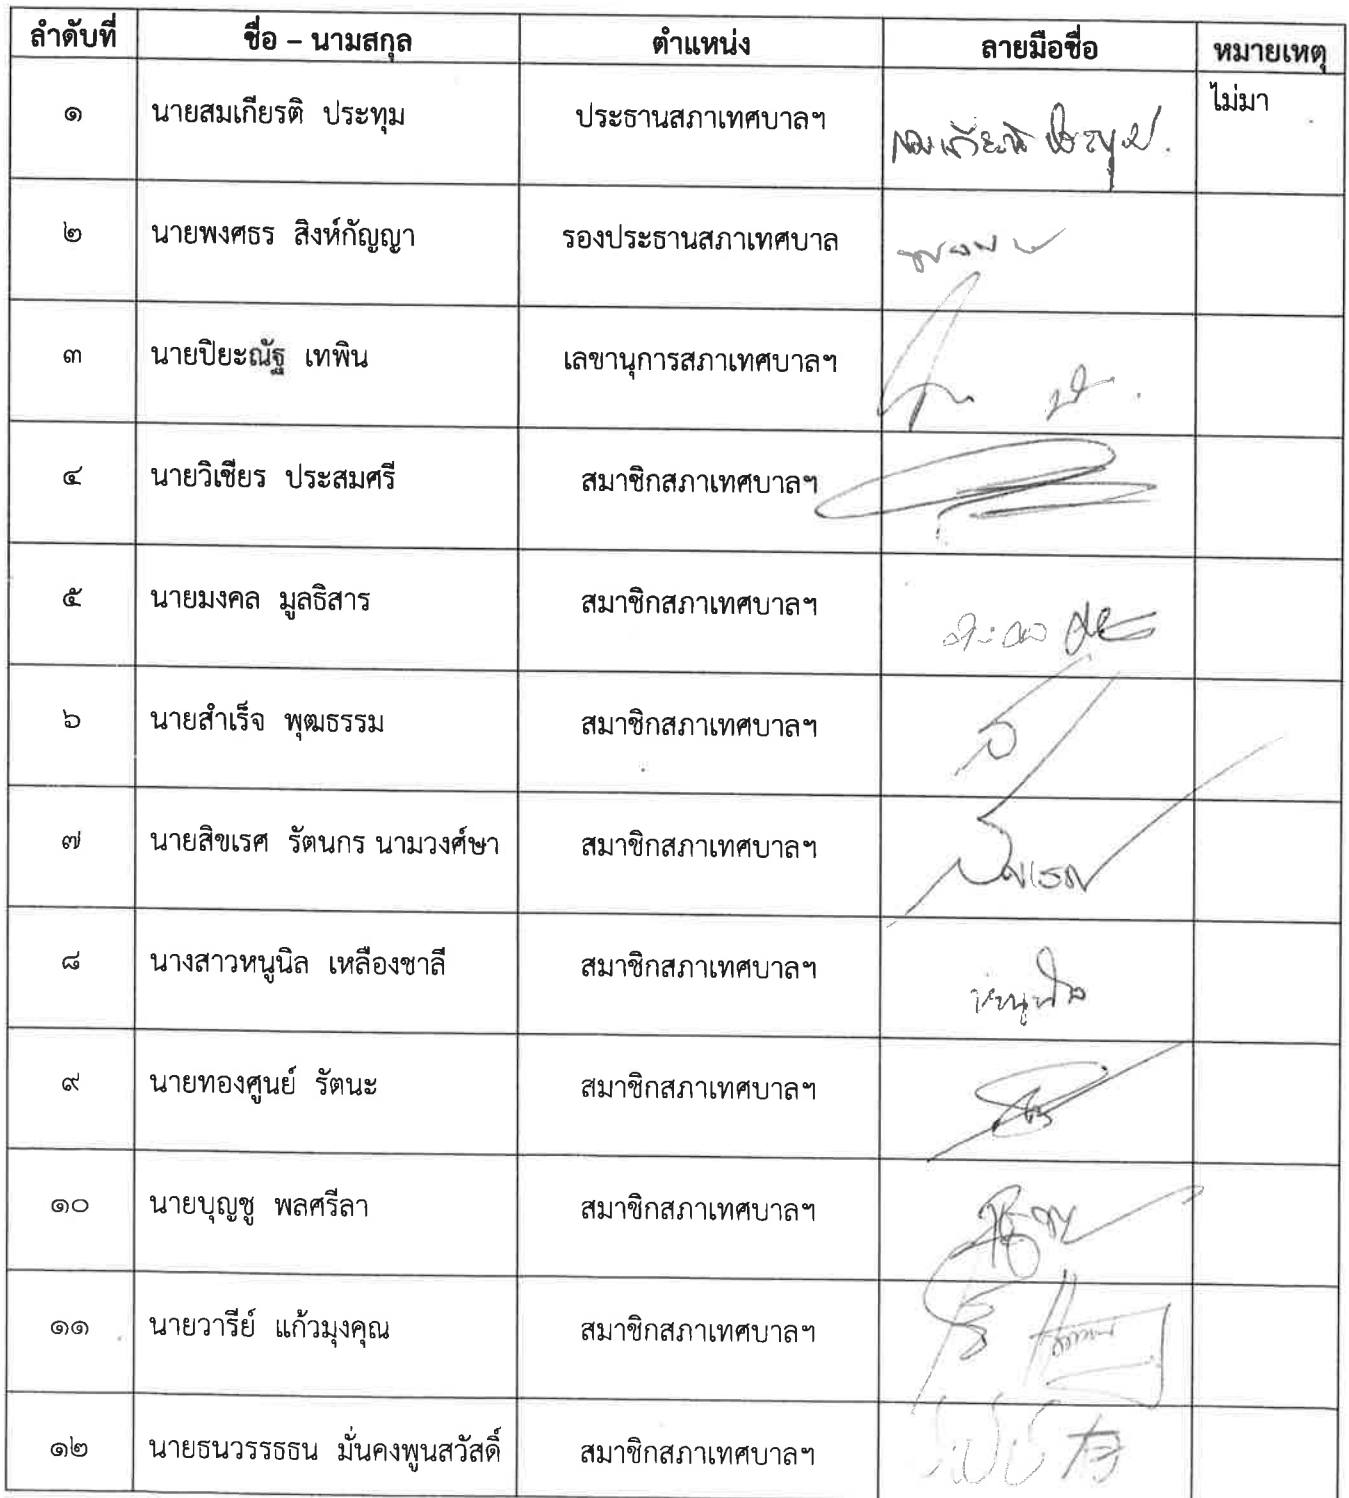 ลำดับที่ ชื่อ – นามสกุล ตำแหน่ง ลายมือชื่อ หมายเหตุ
๑ นายสมเกียรติ ประทุม ประธานสภาเทศบาลฯ สมเกียรติ ประทุม. ไม่มา
๒ นายพงศธร สิงห์กัญญา รองประธานสภาเทศบาล
๓ นายปิยะณัฐ เทพิน เลขานุการสภาเทศบาลฯ
๔ นายวิเชียร ประสมศรี สมาชิกสภาเทศบาลฯ
๕ นายมงคล มูลธิสาร สมาชิกสภาเทศบาลฯ
๖ นายสำเร็จ พุฒธรรม สมาชิกสภาเทศบาลฯ
๗ นายสิขเรศ รัตนกร นามวงศ์ษา สมาชิกสภาเทศบาลฯ สิขเรศ
๘ นางสาวหนูนิล เหลืองชาลี สมาชิกสภาเทศบาลฯ หนูนิล
๙ นายทองศูนย์ รัตนะ สมาชิกสภาเทศบาลฯ
๑๐ นายบุญชู พลศรีลา สมาชิกสภาเทศบาลฯ
๑๑ นายวารีย์ แก้วมุงคุณ สมาชิกสภาเทศบาลฯ
๑๒ นายธนวรรธธน มั่นคงพูนสวัสดิ์ สมาชิกสภาเทศบาลฯ